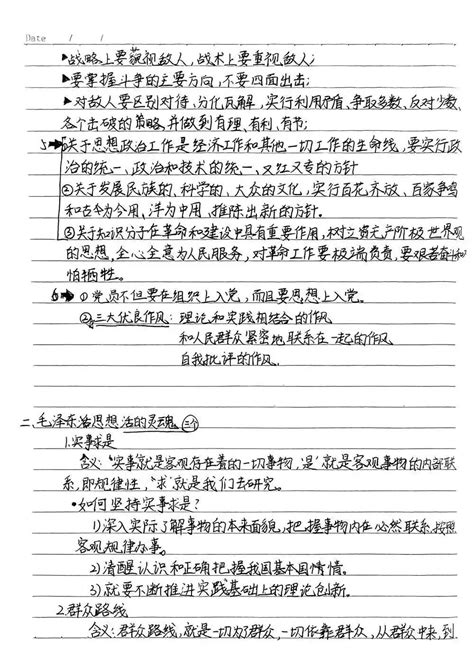 Date / /
▸战略上要藐视敌人，战术上要重视敌人；
▸要掌握斗争的主要方向，不要四面出击；
▸对敌人要区别对待、分化瓦解，实行利用矛盾、争取多数、反对少数、
各个击破的策略，并做到有理、有利、有节；
5→①关于思想政治工作是经济工作和其他一切工作的生命线，要实行政
治的统一、政治和技术的统一、又红又专的方针
②关于发展民族的、科学的、大众的文化，实行百花齐放、百家争鸣
和古为今用、洋为中用、推陈出新的方针。
③关于知识分子在革命和建设中具有重要作用，树立资产阶级世界观
的思想，全心全意为人民服务，对革命工作要极端负责，要艰苦奋斗和
怕牺牲。
6→①党员不但要在组织上入党，而且要思想上入党。
②三大优良作风：理论和实践相结合的作风
和人民群众紧密地联系在一起的作风
自我批评的作风。
二、毛泽东思想活的灵魂 三个
1.实事求是
含义："实事"就是客观存在着的一切事物，"是"就是客观事物的内部联
系，即规律性，"求"就是我们去研究。
•如何坚持实事求是？
1)深入实际了解事物的本来面貌，把握事物内在必然联系，按照
客观规律办事。
2)清醒认识和正确把握我国基本国情。
3)就要不断推进实践基础上的理论创新。
2.群众路线
含义：群众路线，就是一切为了群众，一切依靠群众，从群众中来，到